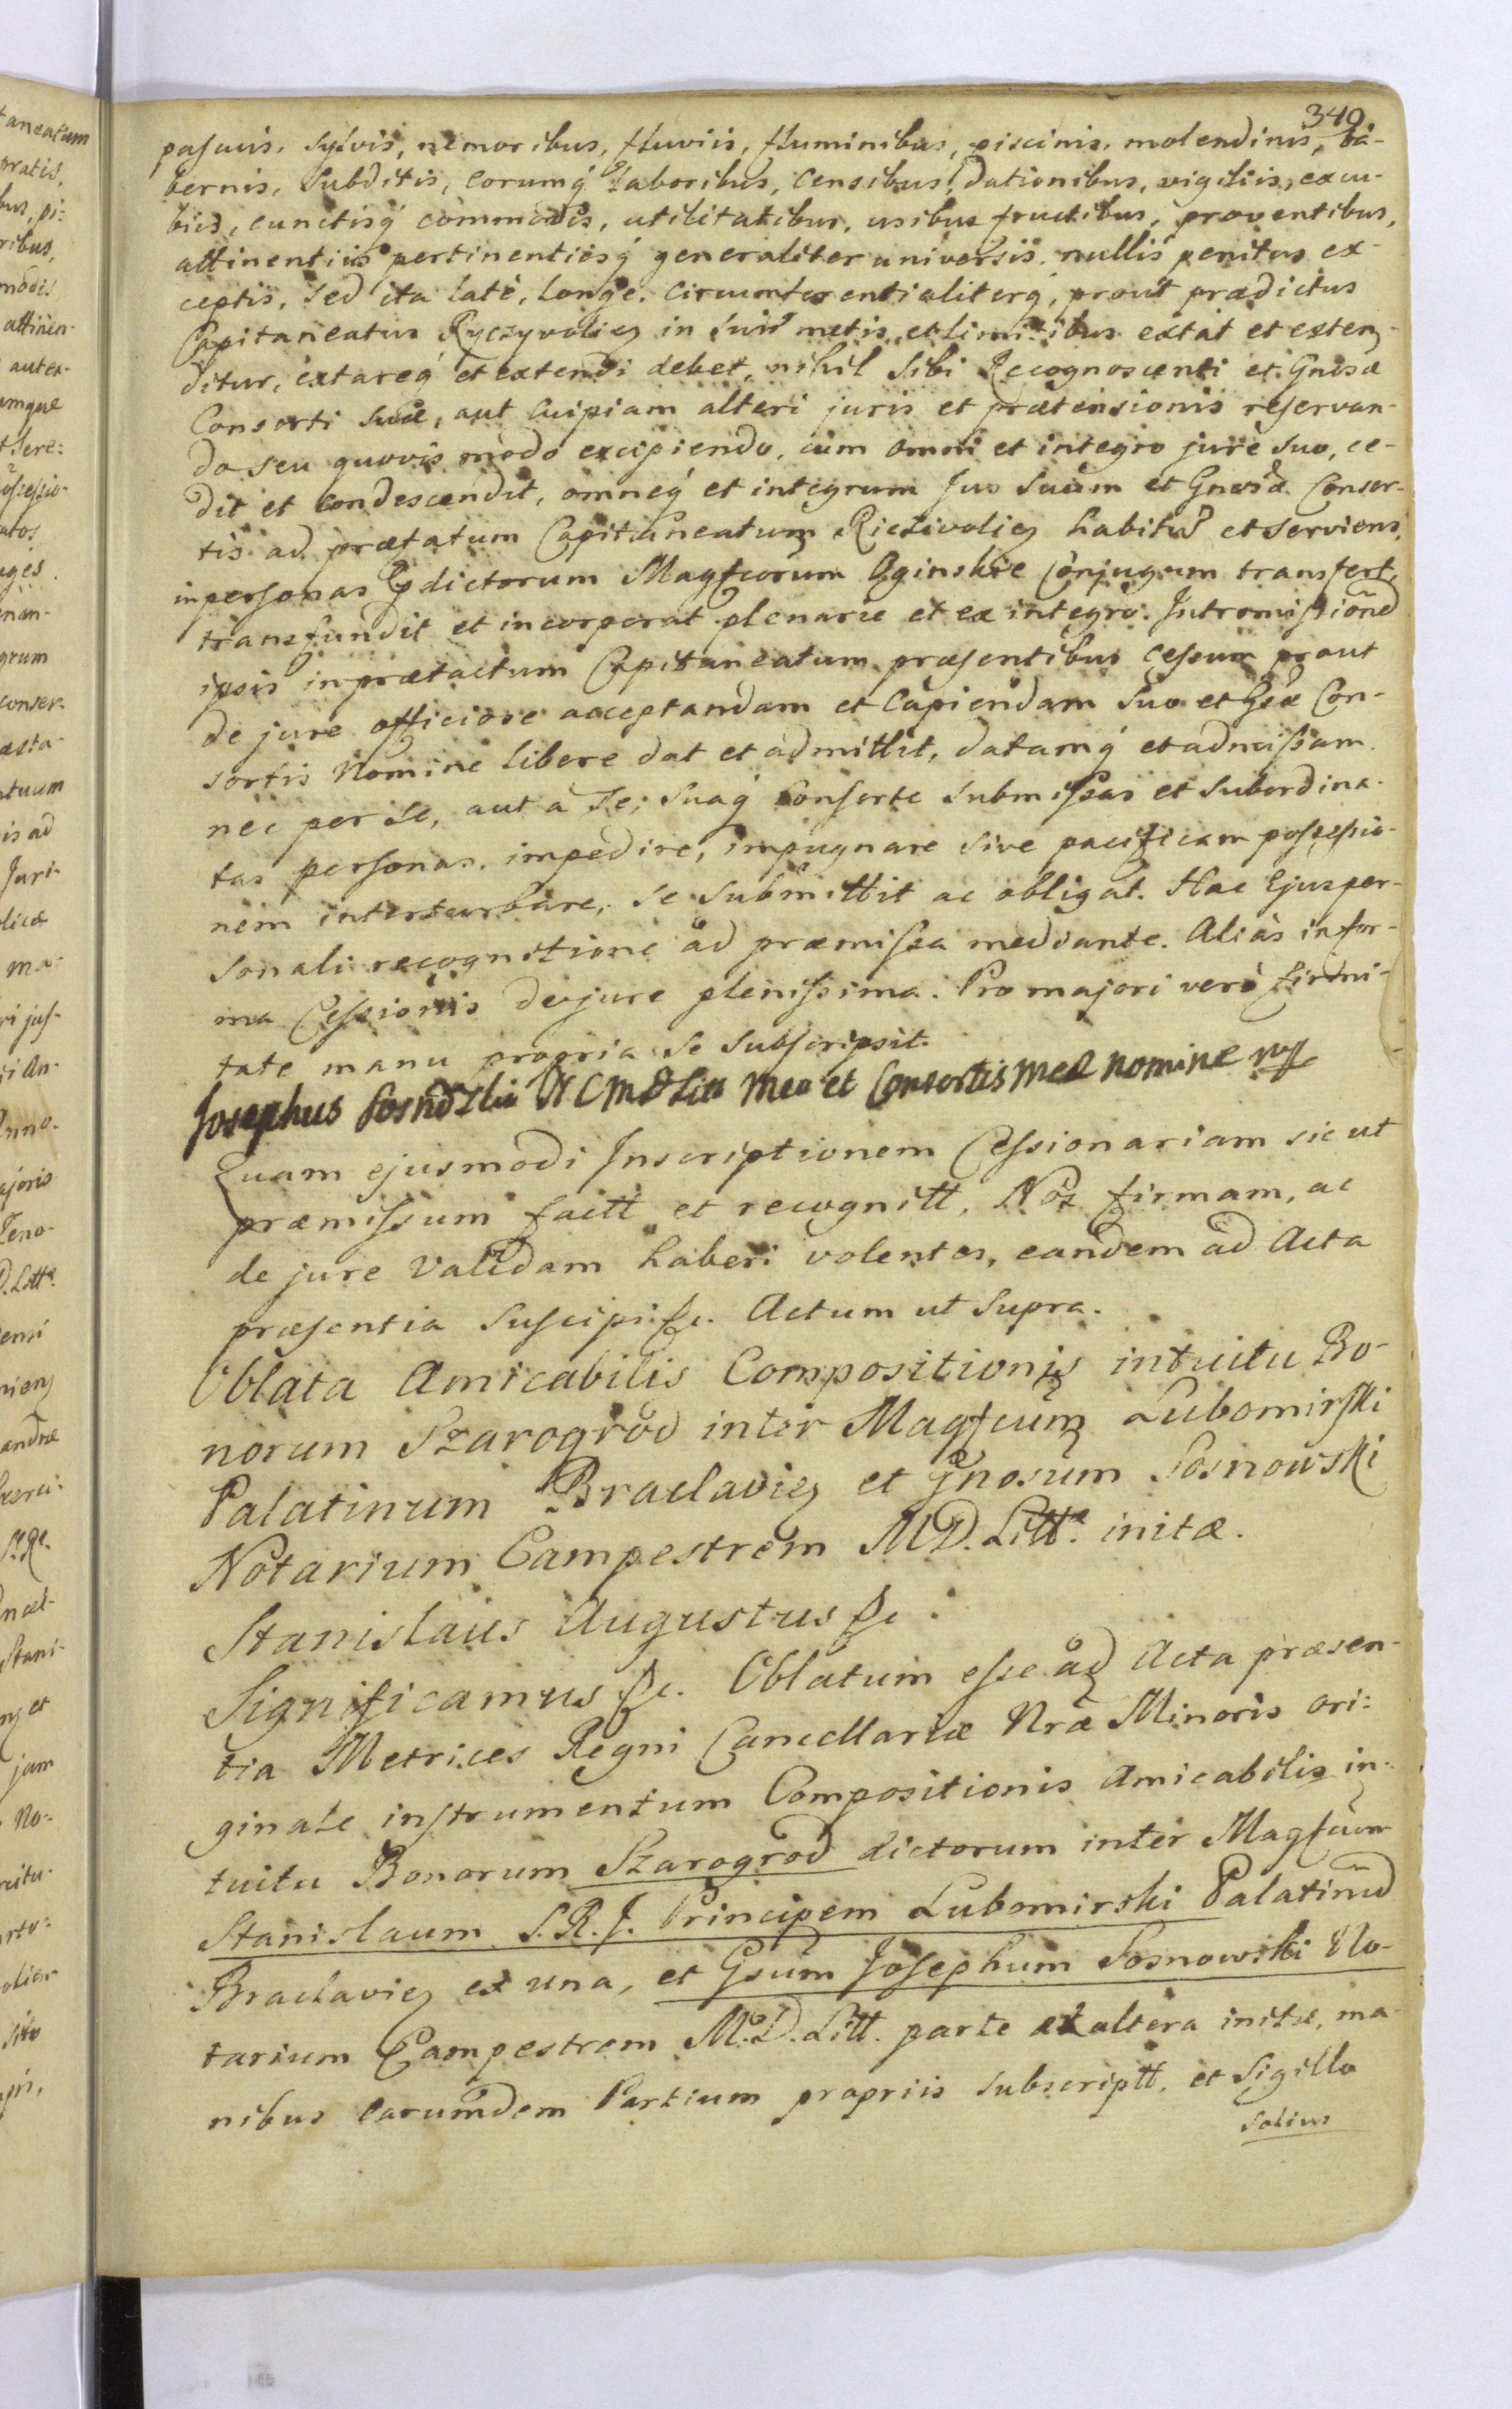 349.
pascuis, sylvis, nemoribus, fluviis, fluminibus, piscinis, molendinis, ta-
bernis, Subditis, eorumq́ Laboribus, Censibus, dationibus, vigiliis, excu-
biis, cunctisq́ commodis, utilitatibus, usibus fructibus, proventibus,
attinentiis pertinentiisq́ generaliter universis, nullis penitus ex-
ceptis, sed ita latè, longè, circumferentialiterq́, prout prædictus
Capitaneatus Ryczyvolien in suis metis et limitibus extat et exten-
ditur, extareq́ et extendi debet, nihil Sibi Recognoscenti et Gnosæ
Consorti Suæ, aut cuipiam alteri juris et prætensionis reservan-
do seu quovis modo excipiendo, cum omni et integro jure suo, ce-
dit et condescendit, omneq́ et integrum Jus Suum et Gnosæ Consor-
tis ad præfatum Capitaneatum Riczivolien habitũ et serviens,
in personas dictorum Magfcorum Oginskie Conjugum transfert,
transfundit et incorporat plenarie et ex integro. Intromissionẽ
ipsis in prætactum Capitaneatum præsentibus Cessum prout
de jure officiose acceptandam et Capiendam Suo et Gsæ Con-
sortis Nomine libere dat et admittit, datamq́ et admissam
nec per se, aut à Se, Suaq́ Consorte Submissas et Subordina-
tas personas, impedire, impugnare sive pacificam possessio-
nem interturbare, se Submittit ac obligat. Hac Ejus per-
sonali recognitione ad præmissa mediante. Aliàs in for-
ma Cessionis de jure plenissima. Pro majori verò firmi-
tate manu propria se Subscripsit.
Josephus Sosnowski N C M D Litt Meo et Consortis meæ nomine mp
Quam ejusmodi Inscriptionem Cessionariam sic ut
præmissum factt et recognitt, Nos firmam, ac
de jure Validam haberi volentes, eandem ad Acta
præsentia Suscipi &c. Actum ut Supra.
Oblata Amicabilis Compositionis intuitu Bo-
norum Szarogrod inter Magfcum Lubomirski
Palatinum Braclavien et Gnosum Sosnowski
Notarium Campestrem M.D. Littæ. initæ.
Stanislaus Augustus &c.
Significamus &c. Oblatum esse ad Acta præsen-
tia Metrices Regni Cancellariæ Nræ Minoris ori:
ginale instrumentum Compositionis Amicabilis in-
tuitu Bonorum Szarogrod dictorum inter Magfcum
Stanislaum S.R.J. Principem Lubomirski Palatinũ
Braclavien ex una, et Gsum Josephum Sosnowski No-
tarium Campestrem M.D. Litt. parte ex altera initæ, ma-
nibus earumdem Partium propriis subscriptt, et Sigillo
Solius